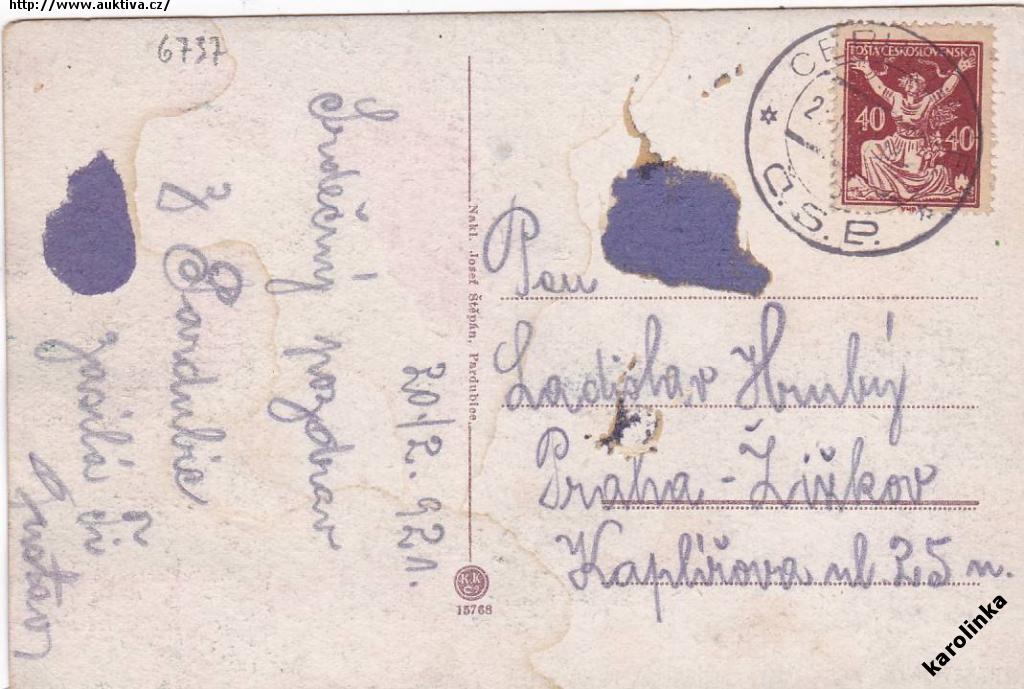 http://www.auktiva.cz/
6737
Srdečný pozdrav
z Pardubic
zasílá ti
Gustav
20/2. 921.
Nakl. Josef Štěpán, Pardubice.
K K
15768
POŠTA ČESKOSLOVENSKA
40 40
Č.S.P.
Pan
Ladislav Hrubý
Praha-Žižkov
Kaplířova ul 25 n.
karolinka